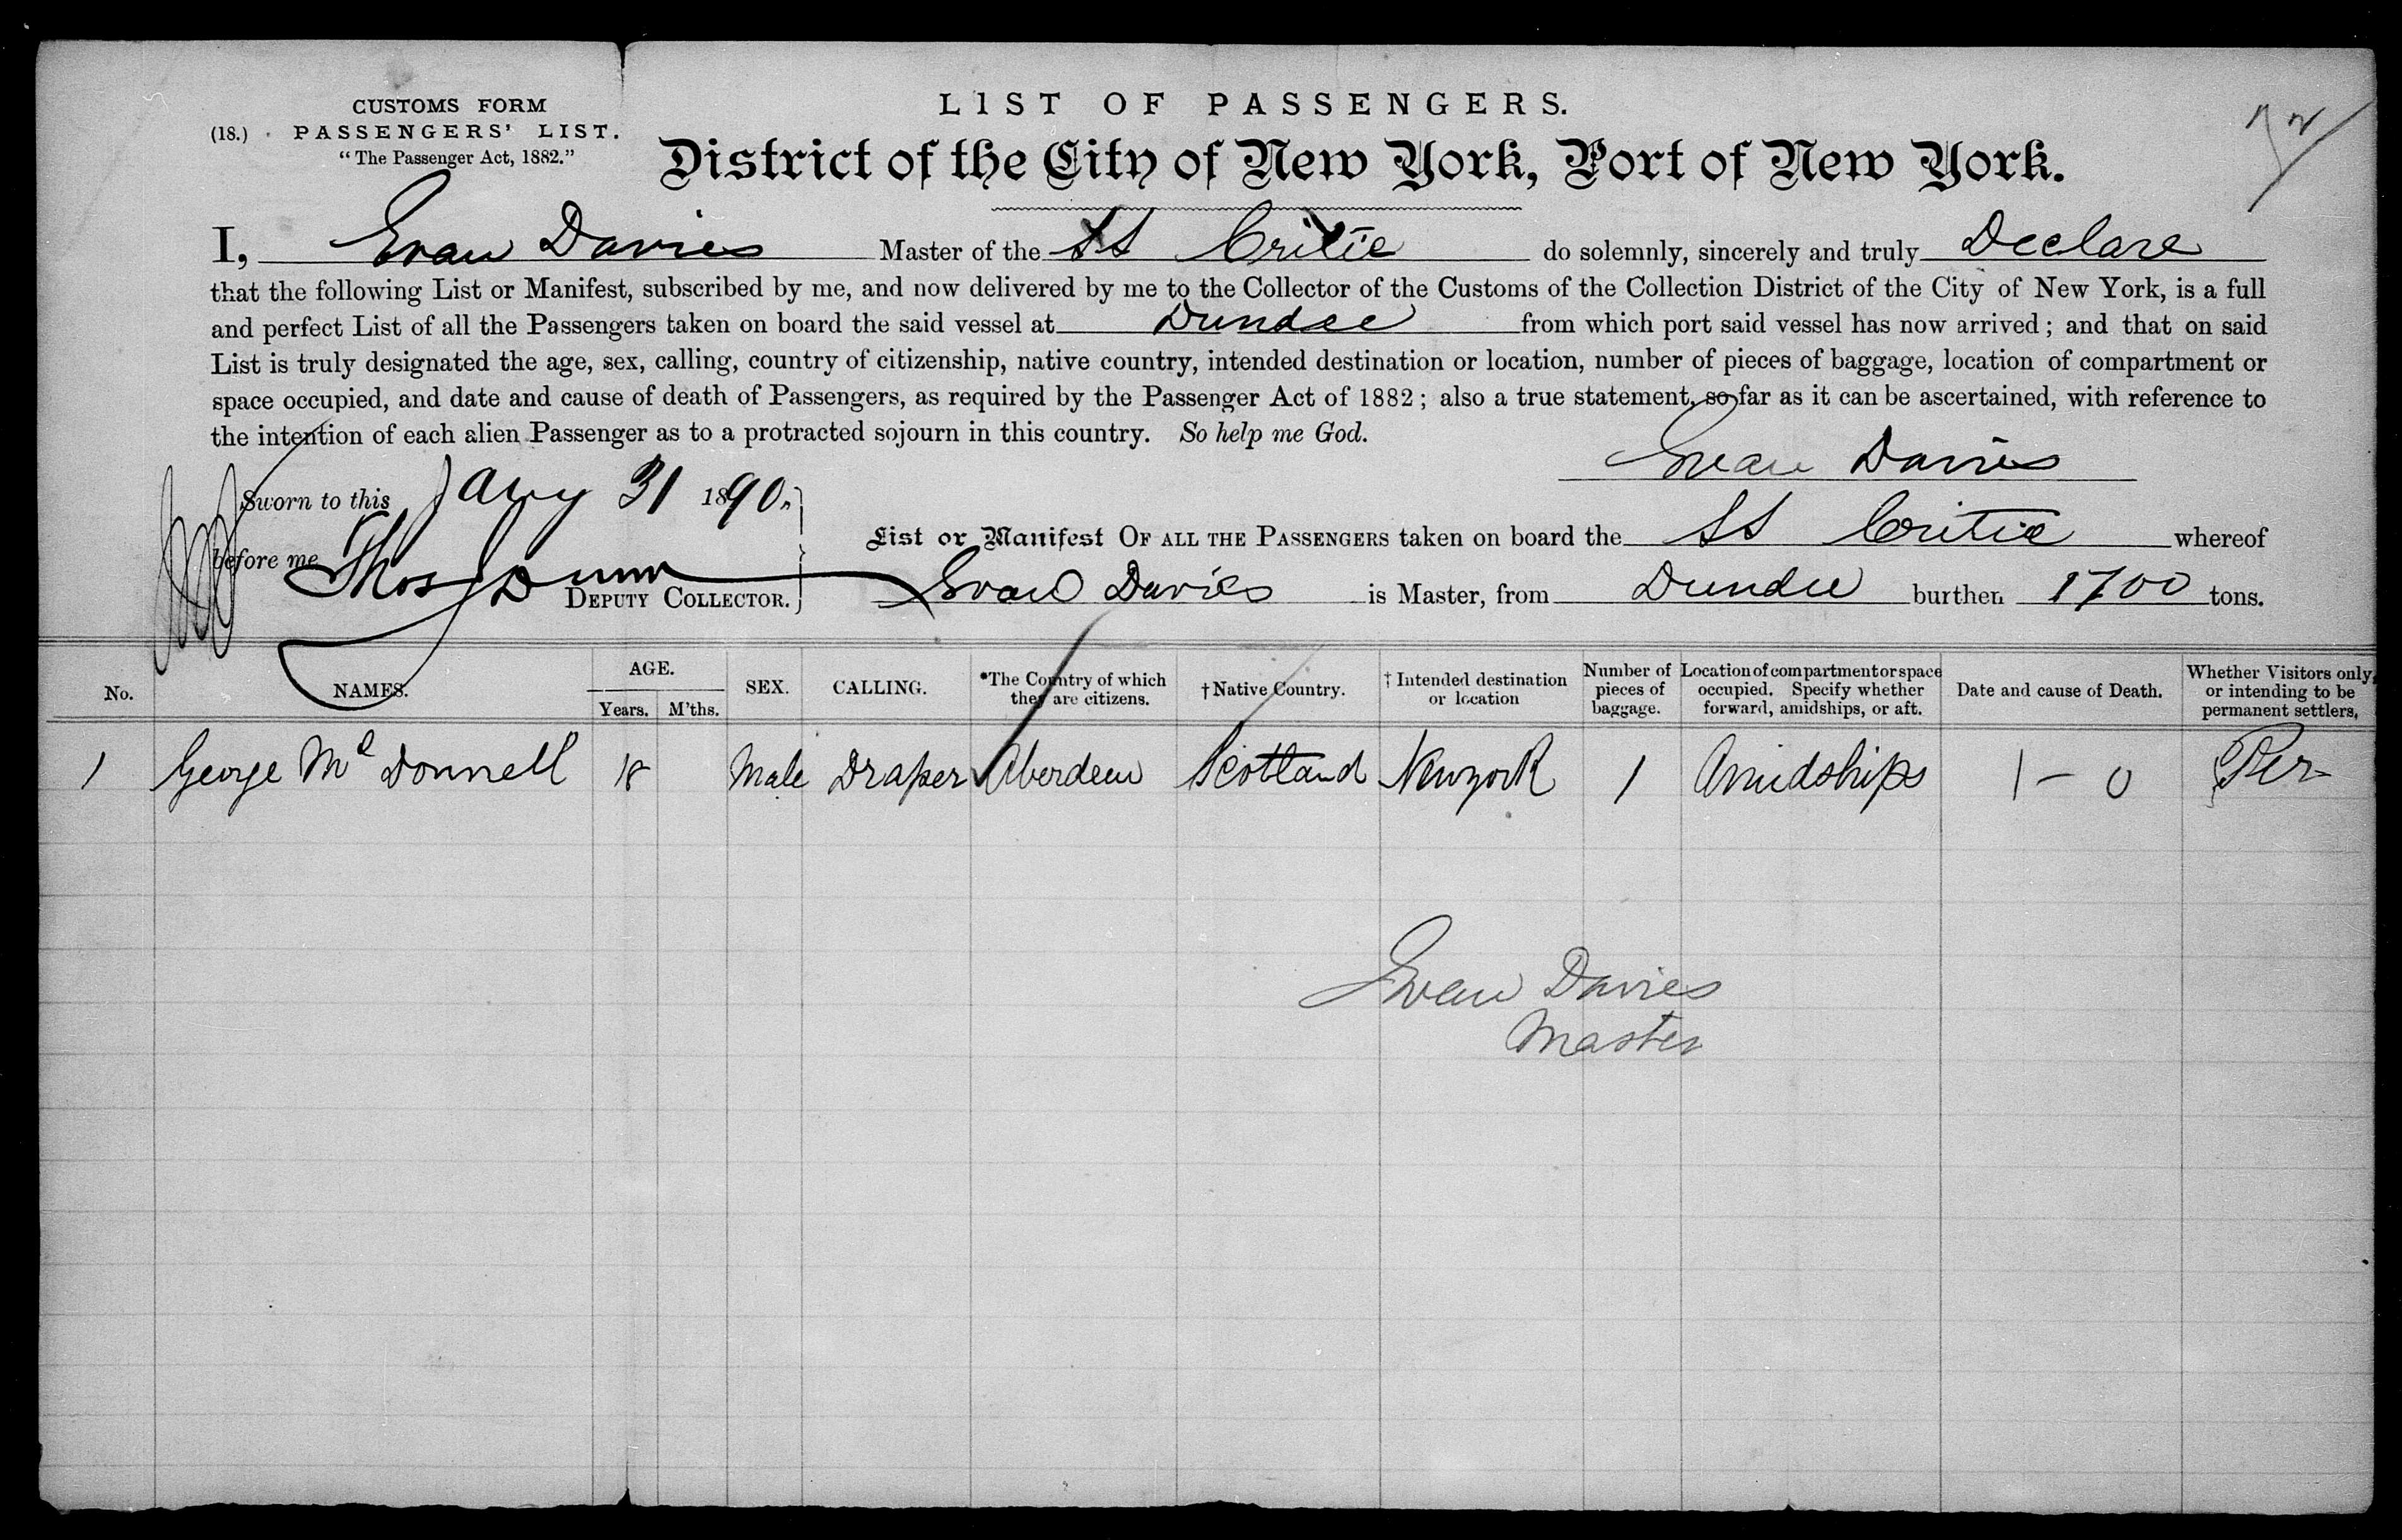 CUSTOMS FORM
(18.) PASSENGERS' LIST.
"The Passenger Act, 1882."
LIST OF PASSENGERS.
District of the City of New York, Port of New York.
I, Evan Davies Master of the SS Critic do solemnly, sincerely and truly Declare
that the following List or Manifest, subscribed by me, and now delivered by me to the Collector of the Customs of the Collection District of the City of New York, is a full
and perfect List of all the Passengers taken on board the said vessel at Dundee from which port said vessel has now arrived; and that on said
List is truly designated the age, sex, calling, country of citizenship, native country, intended destination or location, number of pieces of baggage, location of compartment or
space occupied, and date and cause of death of Passengers, as required by the Passenger Act of 1882; also a true statement, so far as it can be ascertained, with reference to
the intention of each alien Passenger as to a protracted sojourn in this country. So help me God.
Evan Davies
Sworn to this Jany 31 1890.
before me Thos Dunn
DEPUTY COLLECTOR.
List or Manifest OF ALL THE PASSENGERS taken on board the SS Critic whereof
Evan Davies is Master, from Dundee burthen 1700 tons.
No. NAMES. AGE. Years. M'ths. SEX. CALLING. *The Country of which they are citizens. †Native Country. †Intended destination or location Number of pieces of baggage. Location of compartment or space occupied. Specify whether forward, amidships, or aft. Date and cause of Death. Whether Visitors only, or intending to be permanent settlers,
1 George Mc Donnell 18 Male Draper Aberdeen Scotland Newyork 1 Amidships 1 - 0 Per
Evan Davies
Master